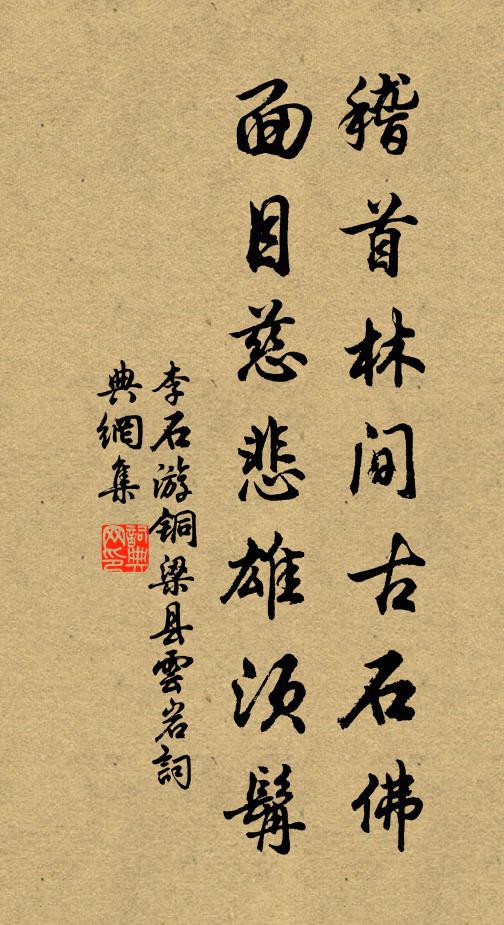 稽首林间古石佛
面目慈悲雄须髯
李石游铜梁县雲岩詞
典網集
詞典網印